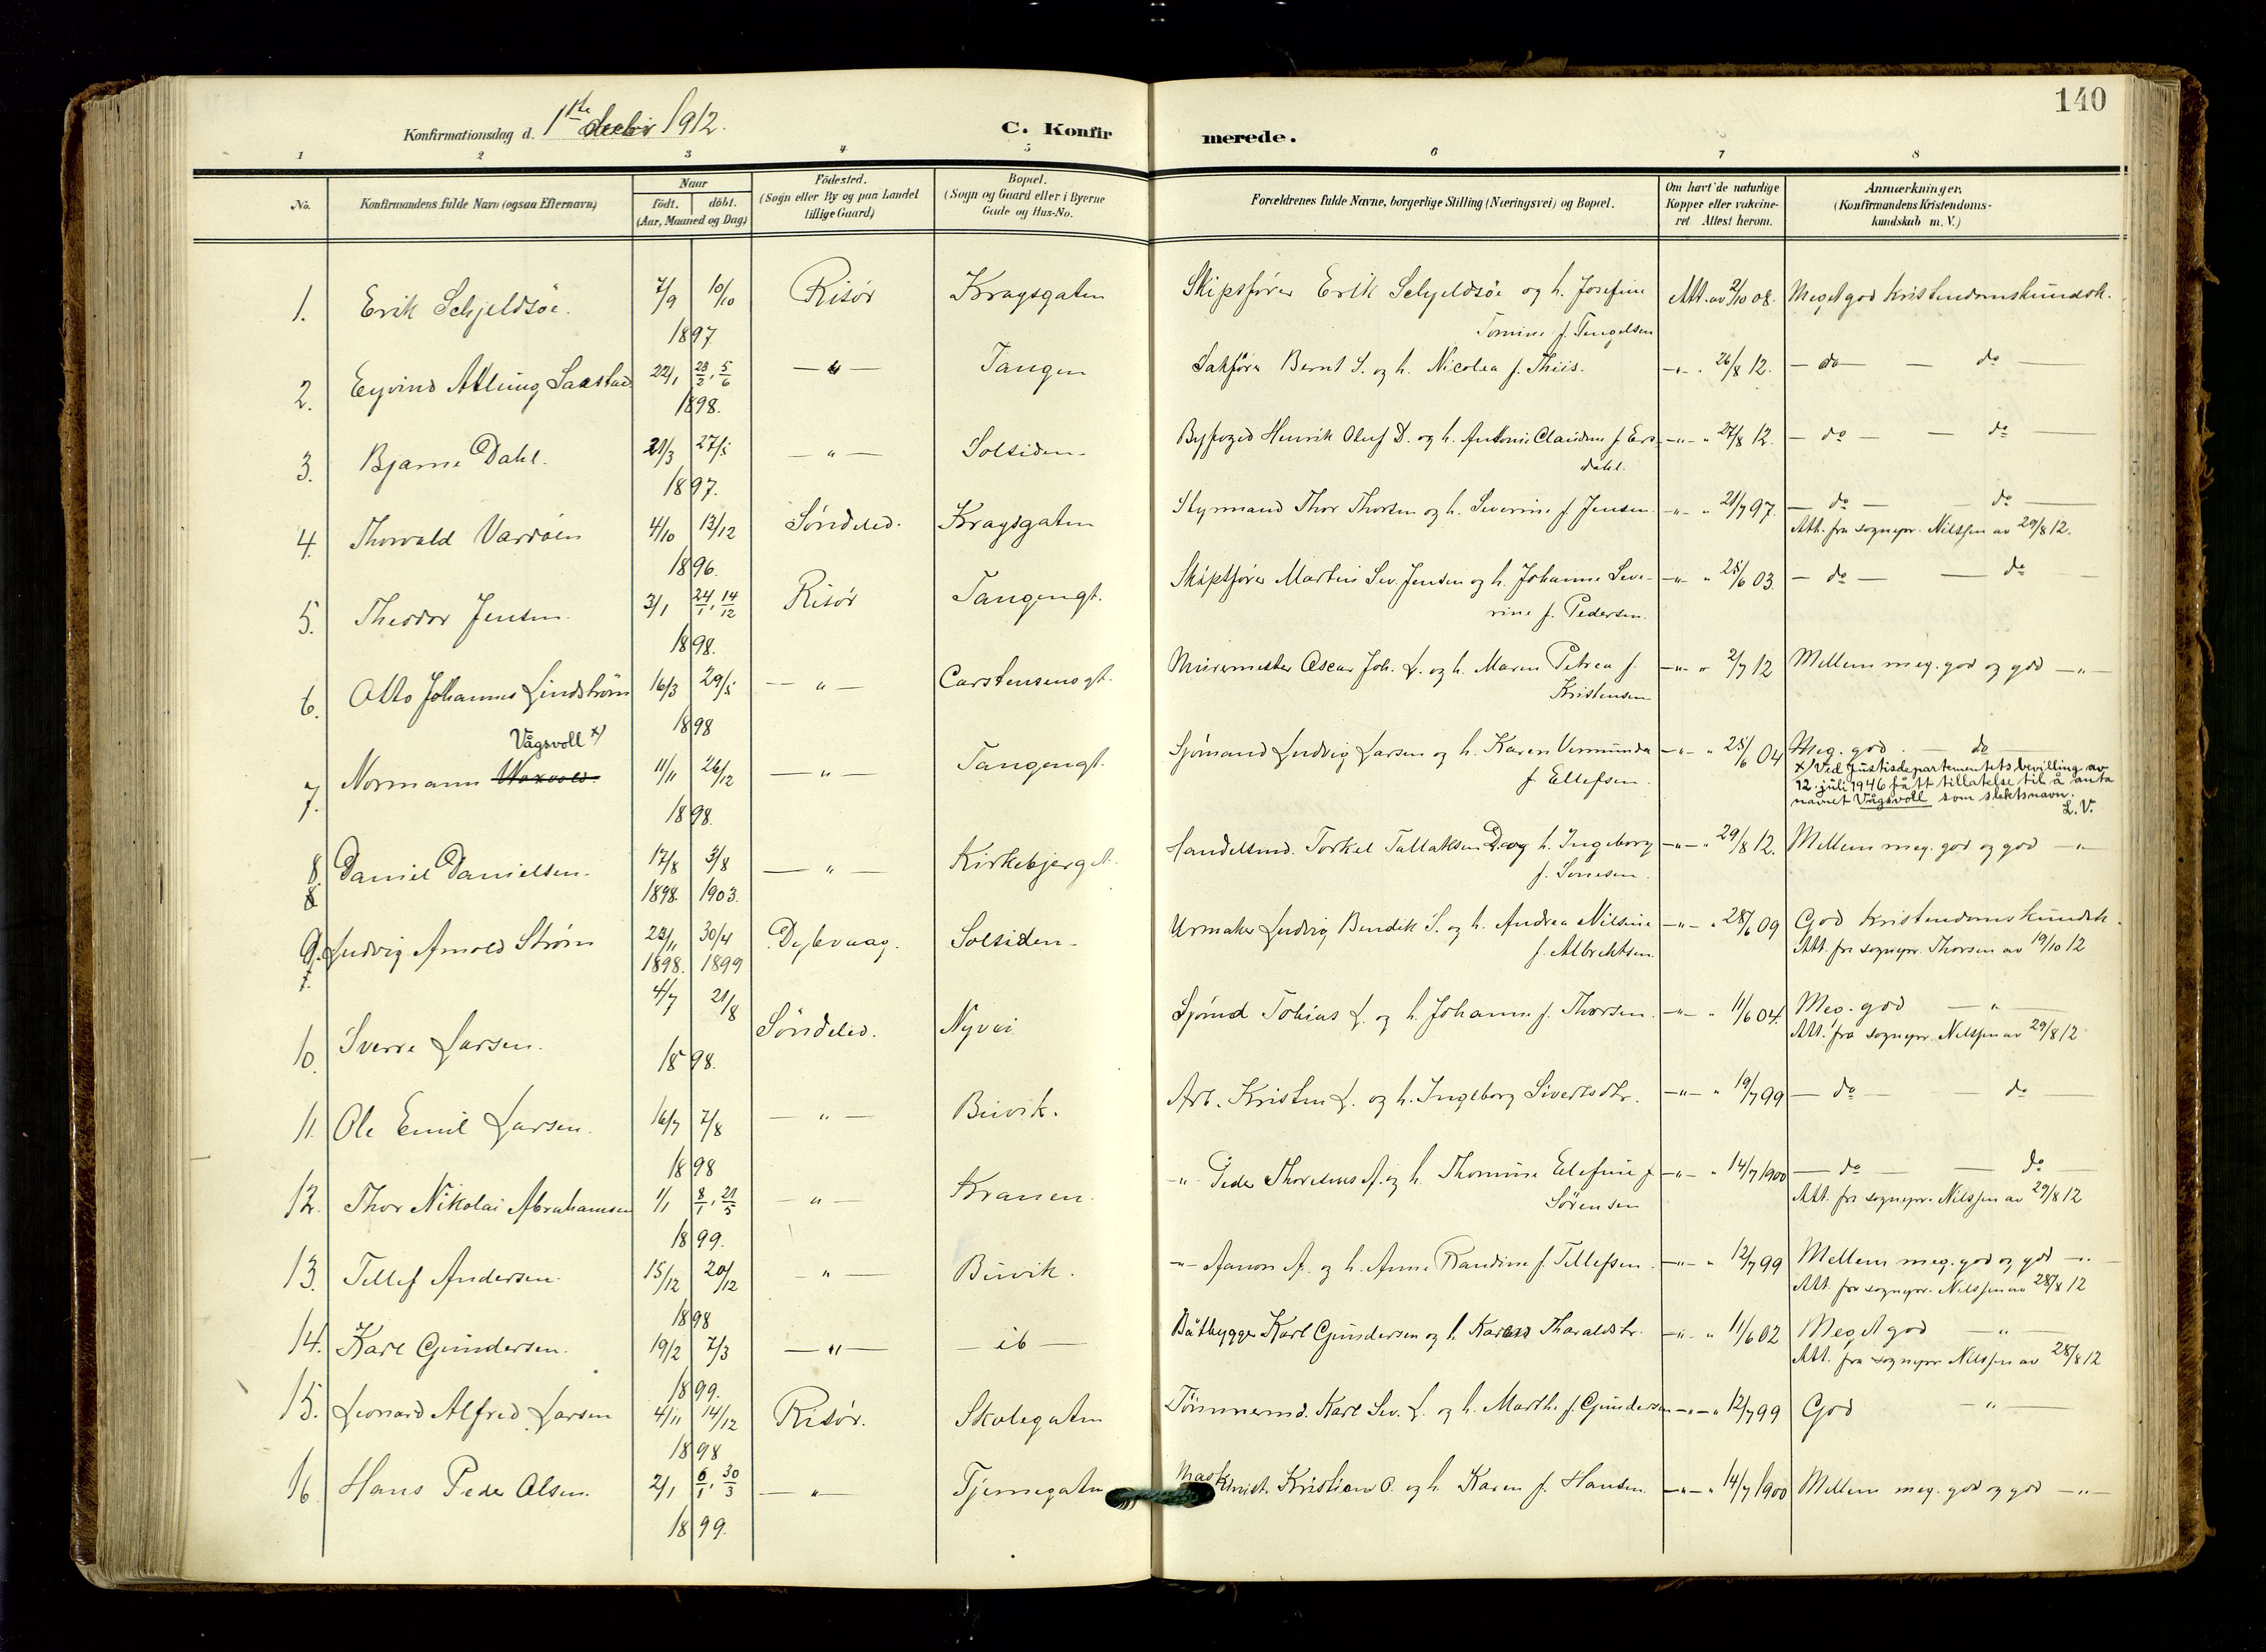 140
Konfirmationsdag d. 1ste 1912.
C. Konfirmerede.
1 2 3 4 5 6 7 8
No. Konfirmandens fulde Navn (ogsaa Efternavn) Naar födt. döbt. (Aar, Maaned og Dag) Födested. (Sogn eller By og paa Landet tillige Gaard) Bopæl. (Sogn og Gaard eller i Byerne Gade og Hus-No. Forældrenes fulde Navne, borgerlige Stilling (Næringsvei) og Bopæl. Om havt de naturlige Kopper eller vakcineret. Attest herom. Anmærkninger, (Konfirmandens Kristendomskundskab m. V.)
1. Erik Schjeldsöe. 7/9 10/10 Risør Kragsgaten Skipsfører Erik Schjeldsöe og h. Josefine Att. av 2/10 08. Meget god kristendomskundsk.
1897. Tomine f. Tengelsen
2. Eyvind Atling Saastad 22/1 23/2, 5/6 — " — Tangen Sakfører Bernt S. og h. Nicolea f. Thiis. — " — " 26/8 12. — do — — do —
1898.
3. Bjarne Dahl. 21/3 27/5 — " — Solsiden. Byfoged Henrik Oluf D. og h. Antonie Claudine f. Ers- — " — " 27/8 12. — do — — do —
1897. dahl.
4. Thorvald Vardöen 4/10 13/12 Söndeled. Kragsgaten Styrmand Thor Thorsen og h. Severine f. Jensen. — " — " 21/7 97. — do — — do —
1896. Att. fra sognepr. Nilssen av 29/8 12.
5. Theodor Jensen. 3/1 24/1, 14/12 Risör Tangengt. Skipsfører Martin Sev. Jensen og h. Johanne Seve- — " — " 25/6 03. — do — — do —
1898. rine f. Pedersen.
6. Otto Johannes Lindström 16/3 29/5 — " — Carstensensgt. Murermester Oscar Joh. L. og h. Maren Petrea f. — " — " 2/7 12 Mellem meg. god og god — " —
1898 Kristensen
Vågsvoll x)
7. Normann Waxvold 11/11 26/12 — " — Tangengt. Sjömand Ludvig Larsen og h. Karen Vermunda — " — " 25/6 04 Meg. god. — do —
1898. f. Ellefsen. x) Ved Justisdepartementets bevilling av
12. juli 1946 fått tillatelse til å anta
navnet Vågsvoll som slektsnavn.
L.V.
8. Daniel Danielsen. 17/8 3/8 — " — Kirkebjerget. Handelsmd. Torkel Tallaksen D. og h. Ingeborg — " — " 29/8 12. Mellem meg. god og god — " —
8 1898. 1903. f.
9. Ludvig Arnold Ström 30/4 Dybvaag. Solsiden. Urmaker Ludvig Bendik S. og h. Andrea Nilsine — " — " 28/6 09 God kristendomskundsk.
1898. 1899 f. Albrektsen. Att. fra sognepr. Thorsen av 19/10 12
10. Sverre Larsen. 4/7 21/8 Söndeled. Nyvei Sjömd Tobias L. og h. Johanne f. Thorsen. — " — " 11/6 04. Meg. god — " —
1898. Att. fra sognepr. Nilssen av 29/8 12
11. Ole Emil Larsen. 16/7 7/8 — " — Buvik. Arb. Kristen L. og h. Ingeborg Sivertsdtr. — " — " 19/7 99 — do — do —
1898
12. Thor Nikolai Abrahamsen 1/1 8/1, 21/5 — " — Kranen. — " — Peder Thoresens A. og h. Thomine Elefine f — " — " 14/7 1900 — do — — do —
1899. Sörensen Att. fra sognepr. Nilssen av 29/8 12
13. Tellef Andersen. 15/12 20/12 — " — Buvik. — " — Aanon A. og h. Anne Randine f. Tellefsen. — " — " 12/7 99 Mellem meg. god og god — " —
1898 Att. fra sognepr. Nilssen av 28/8 12
14. Karl Gundersen. 19/2 7/3 — " — — ib — Båtbygger Karl Gundersen og h. Karen Tharaldsdtr. — " — " 11/6 02 Meget god — " —
1899. Att. fra sognepr. Nilssen av 28/8 12
15. Leonard Alfred Larsen 4/11 14/12 Risör. Skolegaten Tömmermd. Karl Sev. L. og h. Marthe f. Gundersen — " — " 12/7 99 God — " —
1898
16. Hans Peder Olsen. 2/1 6/1, 30/3 — " — Tjernegaten Kristian O. og h. Karen f. Hansen. — " — " 14/7 1900 Mellem meg. god og god — " —
1899.